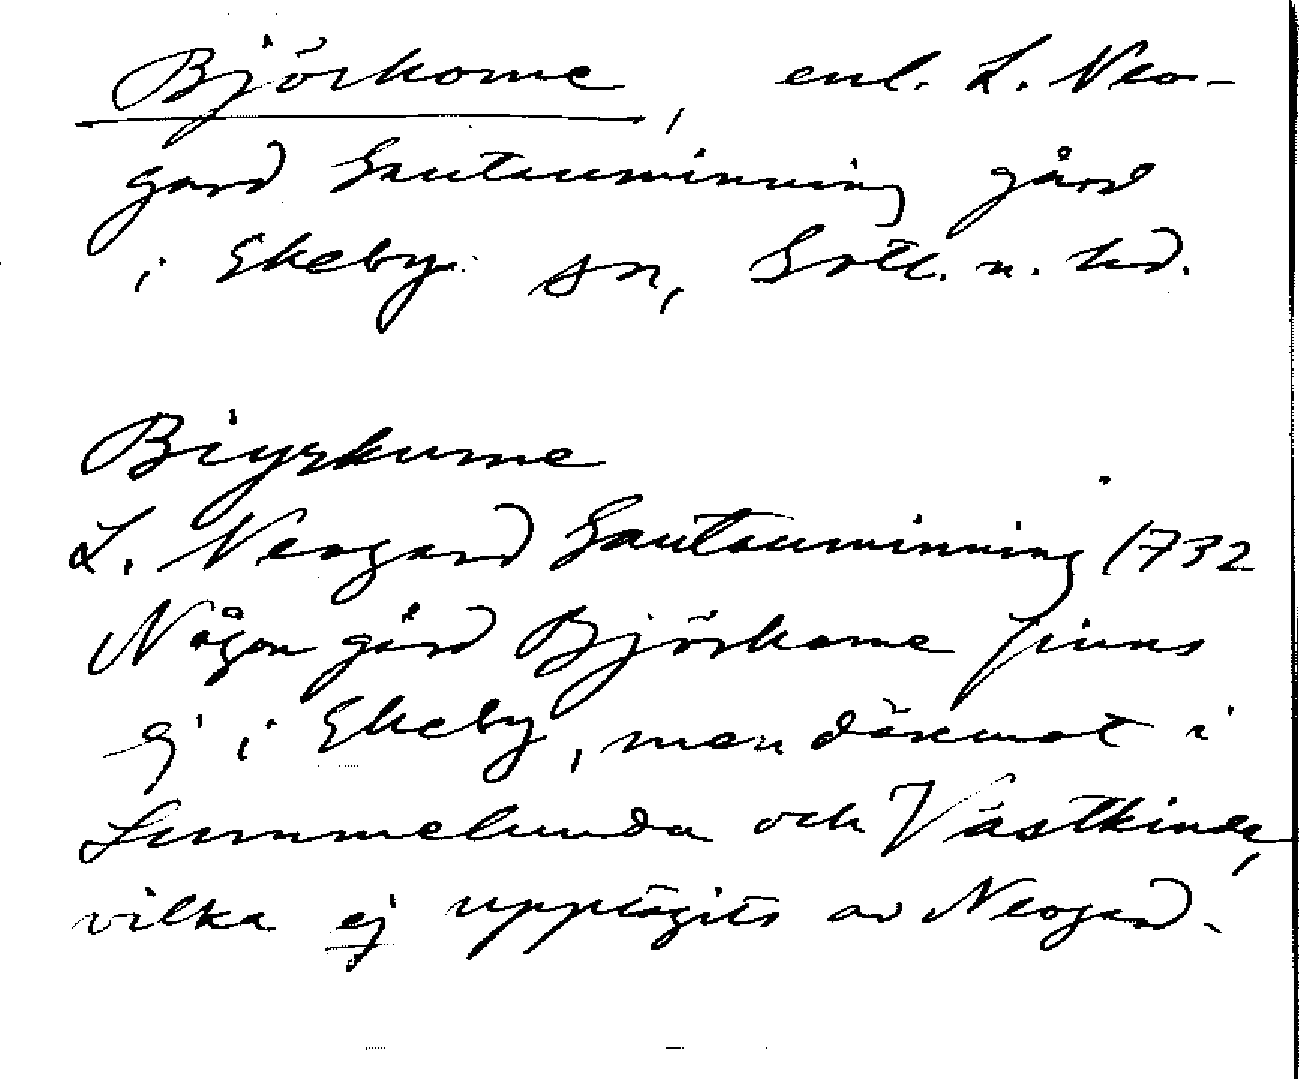 Björkome, enl. L. Neo-
gard Gautauminning gård
i Ekeby sn, Gotl. n. hd.
Biyrkume
L. Neogard Gautauminning 1732
Någon gård Björkome finns
ej i Ekeby, men däremot i
Lummelunda och Västkinde,
vilka ej upptagits av Neogard.